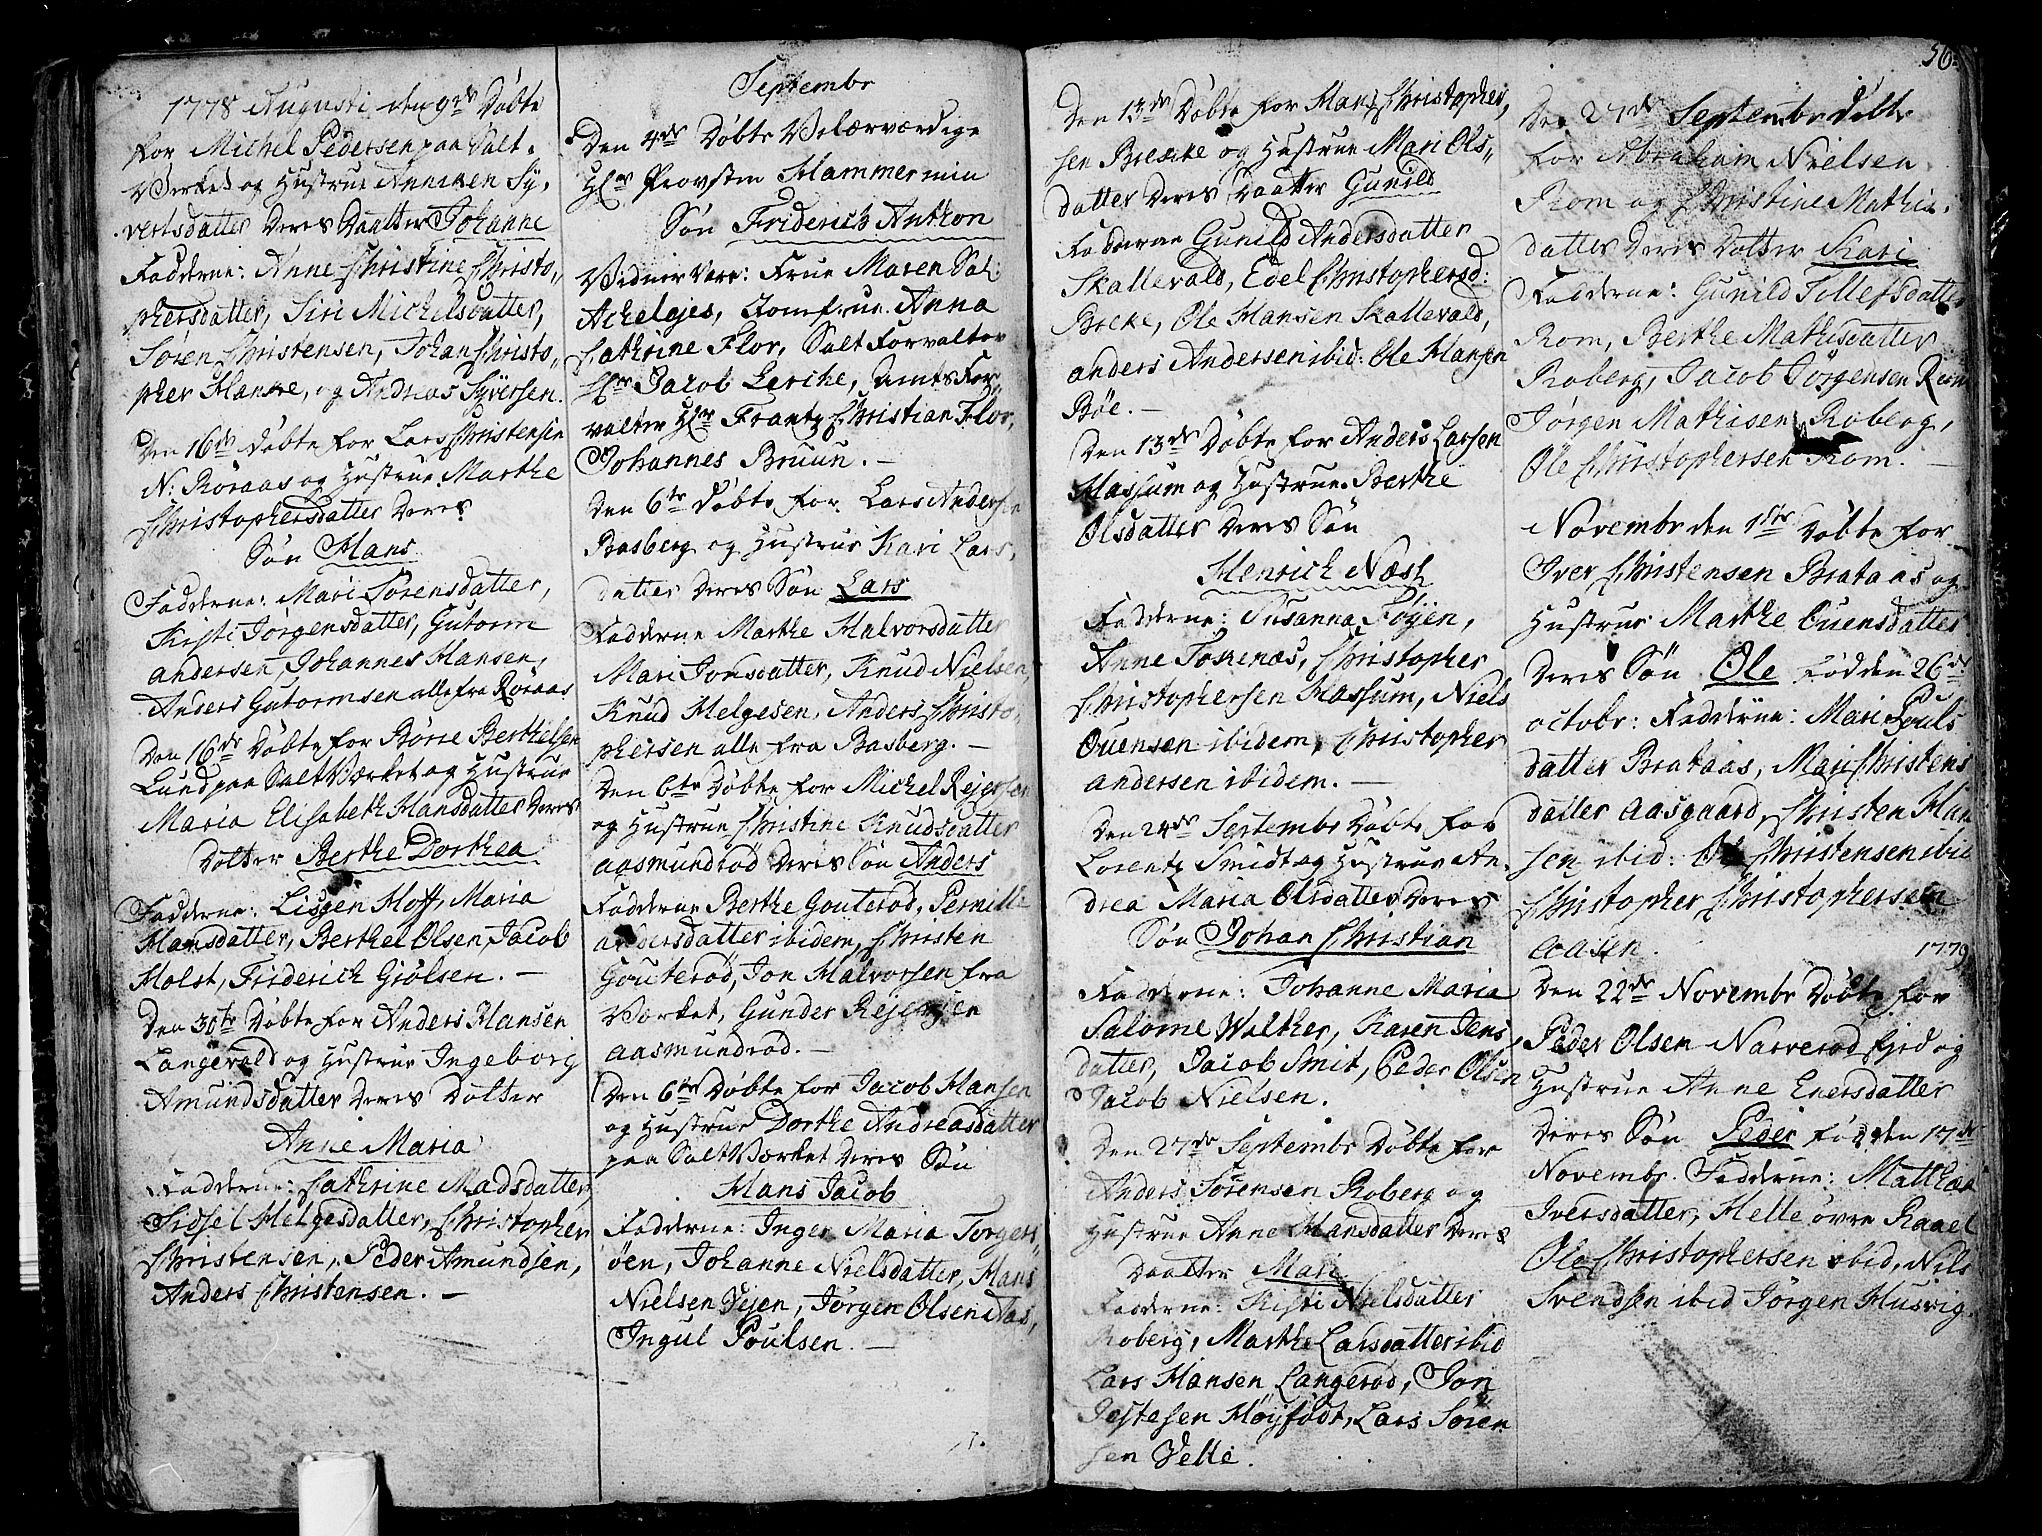 1778 Augusti den 9de Døbte
for Michel Pedersen paa Salt-
Værket og Hustrue Anniken Sy,
vertsdatter deres Daatter Johanne
Fadderne: Anne Christine Christo,,
phersdatter, Siri Michelsdatter,
Søren Christensen, Johan Christo,
pher Hanke, og Andreas Syversen.
Den 16de døbte for Lars Christensen
N: Røraas og Hustrue Marthe
Christophersdatter deres
Søn Hans
Fadderne: Mari Sørensdatter,
Kisti Jørgensdatter, Gutorm
andersen, Johannes Hansen,
Anders Gutormsen alle fra Røraas
Den 16de Døbte for Børre Berthelsen
Lund paa Salt Værket og Hustrue
Maria Elisabeth Hansdatter deres
Dotter Berthe Dorthea
Fadderne: Lisgen Hoff, Maria
Hansdatter, Berthel Olsen, Jacob
Holst, Friderich Giølsen. —
Den 30te Døbte for Anders Hansen
Langevald og Hustrue Ingeborg
Amundsdatter deres Dotter
Anne Maria
Fadderne: Cathrine Madsdatter,
Sidsel Helgesdatter, Christopher
Christensen, Peder Amundsen,
Anders Christensen. —
Septembr
Den 4de Døbte Velærværdige
Hr Provsten Hammer min
Søn Friderich Anthon
Vidner vare: Frue Maren Sal:
Achelejes, Jomfrue Anna
Cathrine Flor, Salt Forvalter
Hr Jacob Lerche, Amts For,,
valter Hr Frantz Christian Flor,
Johannes Bruun. —
Den 6te døbte for Lars Andersen
Basberg og Hustrue Kari Lars,
datter deres Søn Lars
Fadderne Marthe Halvorsdatter
Mari Jonsdatter, Knud Nielsen,
Knud Helgesen, Anders Christo,
phersen alle fra Basberg. —
Den 6te Døbte for Michel Rejersen
og Hustrue Christine Knudsdatter
aasmundrød deres Søn Anders
Fadderne Berthe Gouterød, Pernille
andersdatter ibidem, Christen
Gouterød, Jon Halvorsen fra
Værket, Gunder Rejersen
aasmundrød. —
Den 6te Døbte for Jacob Hansen
og Hustrue Dorthe Andreasdatter
paa Salt Værket deres Søn
Hans Jacob
Fadderne: Inger Maria Torgers,,
øen, Johanne Nielsdatter, Hans
Nielsen Vejen, Jørgen Olsen Aas,
Ingul Poulsen. —
56.
Den 13de Døbte for Hans Christopher,
sen Brekke og Hustrue Mari Ols,,
datter deres Daatter Gunild
Fadderne Gunild Andersdatter
Skallevald, Edel Christophersd:
Breke, Ole Hansen Skallevald,
anders Andersen ibid: Ole Hansen
Bøe. —
Den 13de Døbte for Anders Larsen
Hassum og Hustrue Berthe
Olsdatter deres Søn
Henrich Næsh
Fadderne: Susanna Føyen,
Anne Toskenæs, Christopher
Christophersen Hassum, Niels
Ouensen ibidem, Christopher
andersen ibidem. —
Den 24de Septembr Døbte for
Lorentz Smidt og Hustrue An,
drea Maria Olsdatter deres
Søn Johan Christian
Fadderne: Johanne Maria
Salome Walther, Karen Jens,
datter, Jacob Smit, Peder Olsen
Jacob Nielsen.
Den 27de Septembr Døbte for
Anders Sørensen Roberg og
Hustrue Anne Hansdatter deres
Daatter Mari
Fadderne: Kisti Nielsdatter
Roberg, Marthe Larsdatter ibid
Lars Hansen Langerød, Jon
Jostesen Høyjødt, Lars Søren
sen Velle.
Den 27de Septembr døbte
for Abraham Nielsen
Rom og Christine Mathis,
datter deres Dotter Kari
Fadderne: Gunild Tollefsdatter
Rom, Berthe Mathisdatter
Roberg, Jacob Jørgensen Rom
Jørgen Mathisen Roberg,
Ole Christophersen Rom. —
Novembr den 1ste Døbte for
Iver Christensen Brataas og
Hustrue Marthe Ouensdatter
deres Søn Ole fød den 26de
octobr: Fadderne: Mari Pouls
datter Brataas, Mari Christens
datter aasgaard, Christen Han
sen ibid: Ole Christensen ibid
Christopher Christophersen
aasen.
1779
Den 22de Novembr Døbte for
Peder Olsen Narverød Ejed og
Hustrue Anne Enersdatter
deres Søn Peder fød den 17de
Novembr. Fadderne: Matthia
Iversdatter, Helle øvre Raael
Ole Christophersen ibid, Nils
Svendsen ibid Jørgen Husvig,